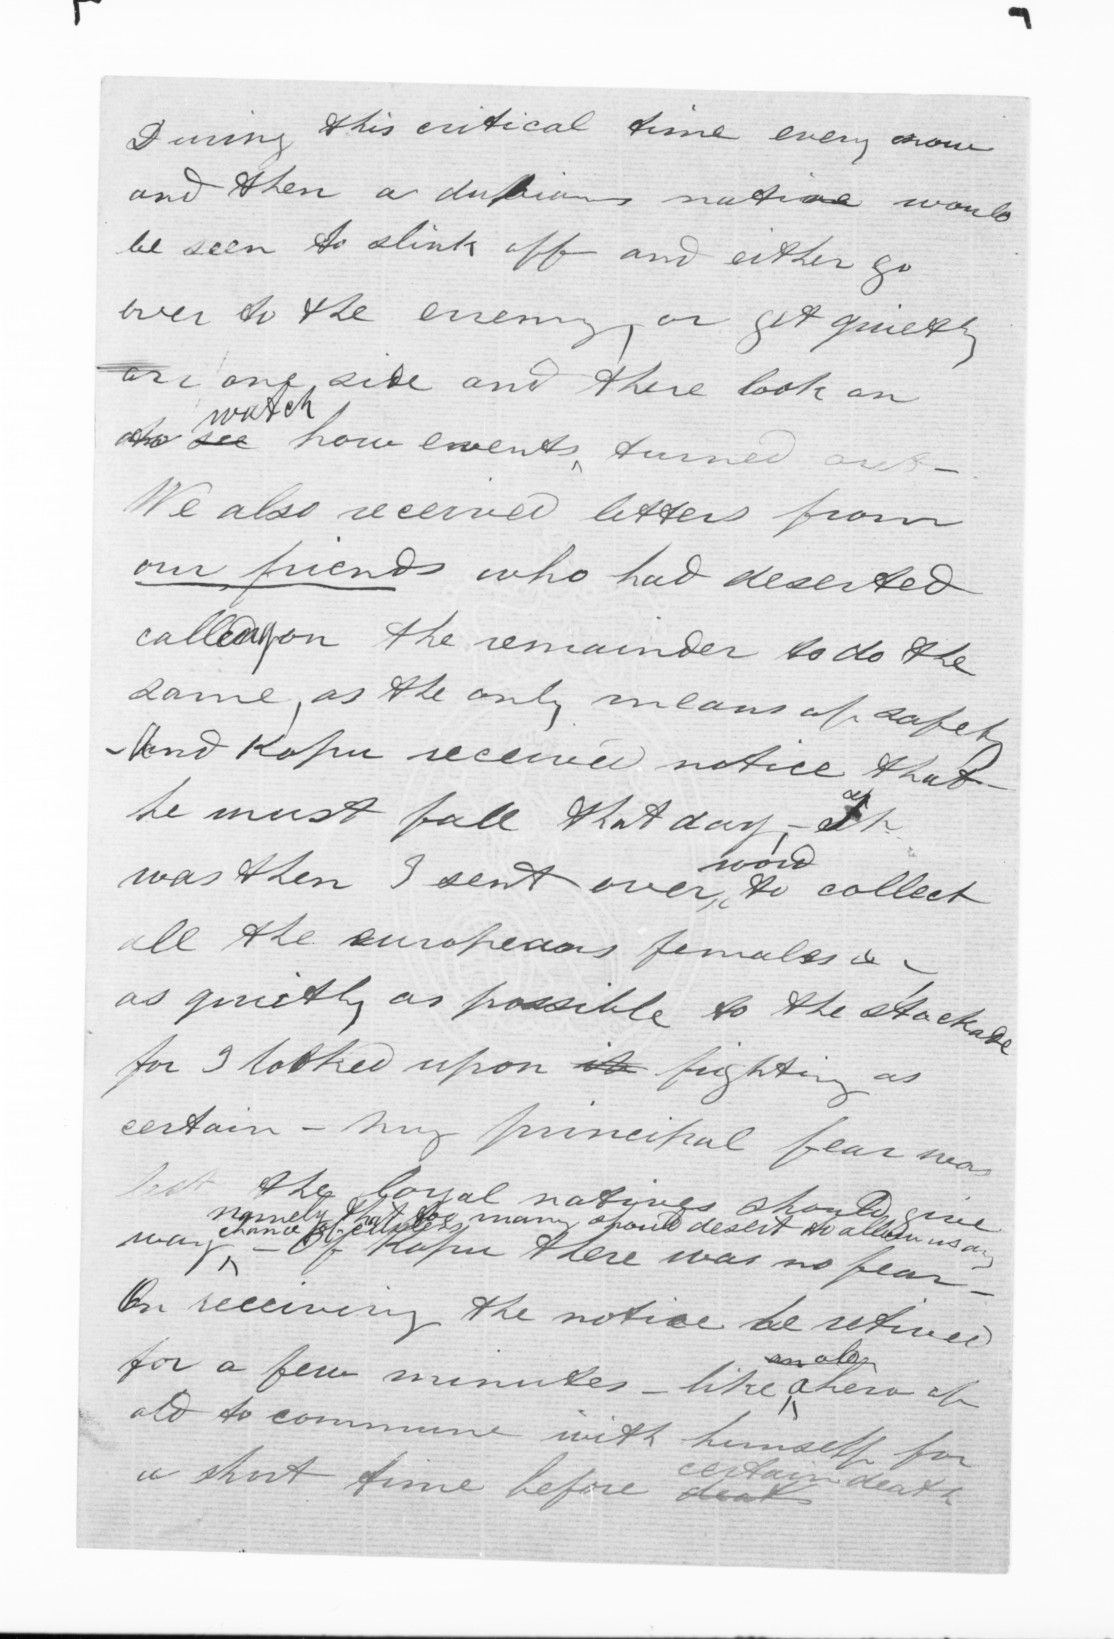 During this critical time every now
and then a dubious native would
be seen to slink off and either go
over to the enemy, or get quietly
on one side and there look on
watch
to see how events turned out -
We also received letters from
our friends who had deserted
called upon the remainder to do the
same, as the only means of safety
- And Kopu received notice that
he must fall that day, - It
word
was then I sent over, to collect
all the europeans females &
as quietly as possible to the stockade
for I looked upon its fighting as
certain - my principal fear was
lest the loyal natives should give
namely that too many should desert to allow us any
chance of success
way, - Of Kopu there was no fear -
On receiving the notice he retired
an olden
for a few minutes - like a hero of
old to commune with himself for
certain death
a short time before death